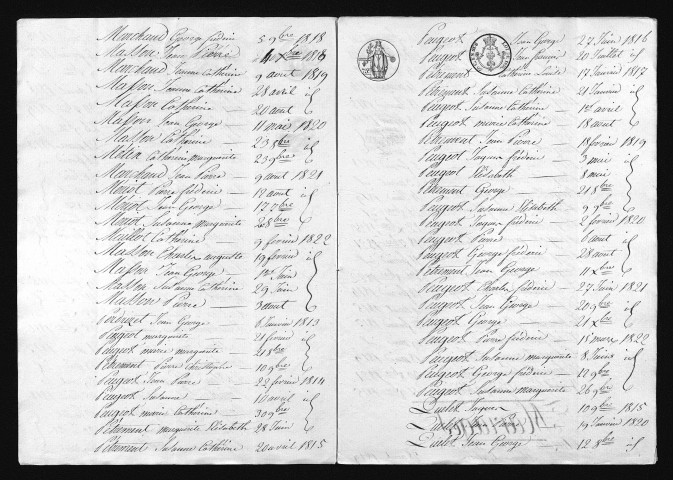 Marchand George frédéric 5 9bre 1818
Masson Jean Pierre 4 Xbre 1818
Marchand Jeanne Catherine 9 avril 1819
Masson Jeanne Catherine 28 avril id
Masson Catherine 20 aout
Masson Jean George 11 mai 1820
Masson Catherine 23 8bre
Méla Catherine marguerite 23 9bre
Marchand Jean Pierre 9 avril 1821
Moniot Pierre frédéric 12 aout id
Moniot Jean George 17 7bre
Moniot Susanne marguerite 28 8bre
Maillot Catherine 9 février 1822
Masson Charles auguste 19 février id
Masson Jean George 1er Juin
Masson Susanne Catherine 29 Juin
Masson Pierre 3 aout
Jean George 6 Janvier 1813
Peugeot marguerite 21 février id
Peugeot marie marguerite 21 8bre
Pétrement Pierre Christophe 10 9bre
Peugeot Jean Pierre 22 février 1814
Peugeot Susanne 10 avril id
Peugeot marie Catherine 30 9bre
Pétrement marguerite Elisabeth 28 Juin
Pétrement Susanne Catherine 20 avril 1815
Peugeot Jean George 27 Juin 1816
Peugeot Jean françois 20 Juillet id
Pétrement Catherine 17 Janvier 1817
Pétrement Susanne Catherine 21 Janvier id
Peugeot Susanne Catherine 1er avril
Peugeot marie Catherine 18 aout
Pétrement Jean Pierre 18 février 1819
Peugeot Jaques frédéric 3 mai id
Peugeot Elisabeth 8 mai
Pétrement George 21 8bre
Peugeot Susanne Elisabeth 9 9bre
Peugeot Jaques frédéric 2 février 1820
Peugeot Pierre 6 aout id
Peugeot George frédéric 28 aout
Pétrement Jean George 11 Xbre
Peugeot Charles frédéric 27 Juin 1821
Peugeot Jean George 20 9bre id
Peugeot George 21 Xbre
Peugeot Pierre frédéric 15 mars 1822
Peugeot Susanne marguerite 8 Juin id
Peugeot George frédéric 12 9bre
Peugeot Susanne marguerite 26 9bre
Quelet Jaques 10 9bre 1815
Quelet 19 Janvier 1820
Quelet Jean George 12 8bre id